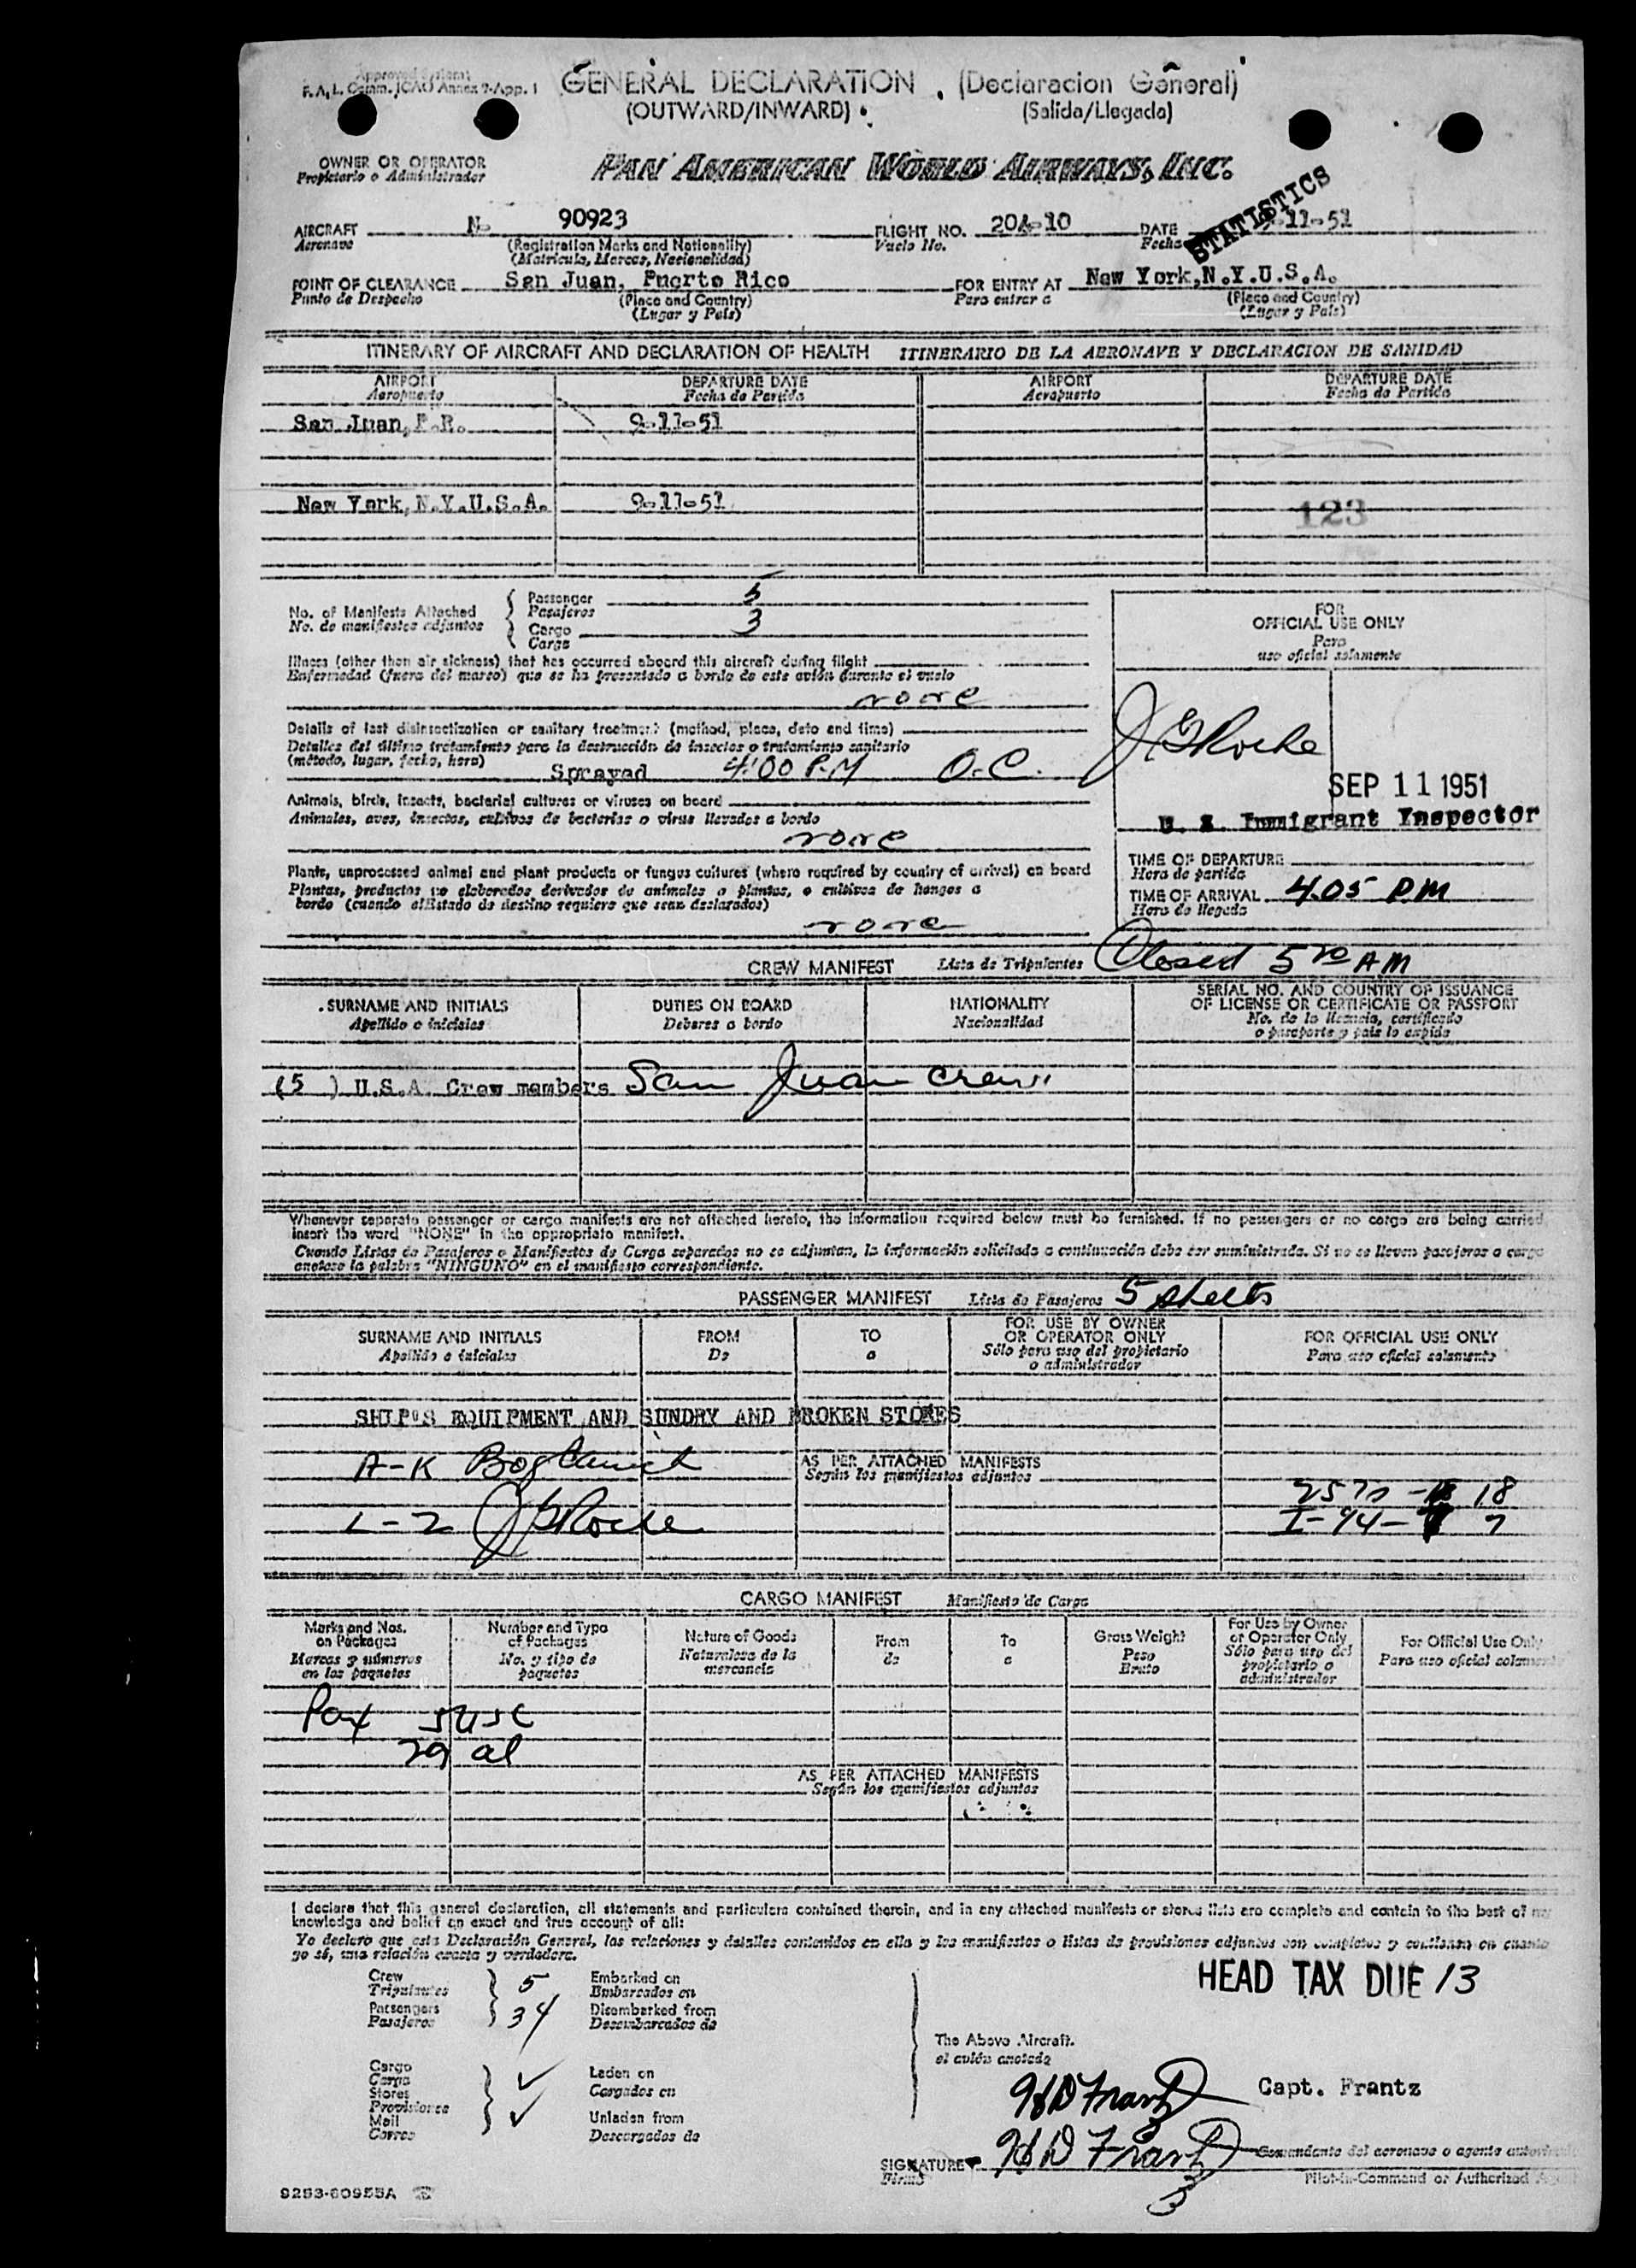 Approved
F.A.L. Comm. ICAO Annex 9-App. 1
GENERAL DECLARATION (Declaracion General)
(OUTWARD/INWARD) (Salida/Llegada)
OWNER OR OPERATOR
Propietario o Administrador
PAN AMERICAN WORLD AIRWAYS, INC.
STATISTICS
AIRCRAFT N- 90923 FLIGHT NO. DATE 9-11-51
Aeronave (Registration Marks and Nationality) Vuelo No. Fecha
(Matricula, Marcas, Nacionalidad)
POINT OF CLEARANCE San Juan, Puerto Rico FOR ENTRY AT New York,N.Y.U.S.A.
Punto de Despacho (Place and Country) Para entrar a (Place and Country)
(Lugar y País) (Lugar y País)
ITINERARY OF AIRCRAFT AND DECLARATION OF HEALTH ITINERARIO DE LA AERONAVE Y DECLARACION DE SANIDAD
AIRPORT DEPARTURE DATE AIRPORT DEPARTURE DATE
Aeropuerto Fecha de Partida Aeropuerto Fecha de Partida
San Juan, P.R. 9-11-51
New York, N.Y.U.S.A. 9-11-51
123
No. of Manifests Attached
No. de manifiestos adjuntos
Passenger 5
Pasajeros
Cargo 3
Carga
Illness (other than air sickness) that has occurred aboard this aircraft during flight
Enfermedad (fuera del mareo) que se ha presentado a bordo de este avión durante el vuelo
none
Details of last disinsectization or sanitary treatment (method, place, date and time)
Detalles del último tratamiento para la destrucción de insectos o tratamiento sanitario
(método, lugar, fecha, hora)
Sprayed 4:00 P.M O.C.
Animals, birds, insects, bacterial cultures or viruses on board
Animales, aves, insectos, cultivos de bacterias o virus llevados a bordo
none
Plants, unprocessed animal and plant products or fungus cultures (where required by country of arrival) on board
Plantas, productos no elaborados derivados de animales o plantas, o cultivos de hongos a
bordo (cuando el Estado de destino requiera que sean declarados)
none
FOR
OFFICIAL USE ONLY
Para
uso oficial solamente
J G Roche
SEP 11 1951
U. S. Immigrant Inspector
TIME OF DEPARTURE
Hora de partida
TIME OF ARRIVAL 4.05 P.M
Hora de llegada
Closed 5 AM
CREW MANIFEST Lista de Tripulantes
SURNAME AND INITIALS DUTIES ON BOARD NATIONALITY SERIAL NO. AND COUNTRY OF ISSUANCE
OF LICENSE OR CERTIFICATE OR PASSPORT
Apellido e iniciales Deberes a bordo Nacionalidad No. de la licencia, certificado
o pasaporte y país lo expide
(5 ) U.S.A. Crew members San Juan crew
Whenever separate passenger or cargo manifests are not attached hereto, the information required below must be furnished. If no passengers or no cargo are being carried
insert the word "NONE" in the appropriate manifest.
Cuando Listas de Pasajeros o Manifiestos de Carga separados no se adjuntan, la información solicitada a continuación debe ser suministrada. Si no se llevan pasajeros o carga
anótese la palabra "NINGUNO" en el manifiesto correspondiente.
PASSENGER MANIFEST Lista de Pasajeros 5 sheets
SURNAME AND INITIALS FROM TO FOR USE BY OWNER
OR OPERATOR ONLY FOR OFFICIAL USE ONLY
Apellido e iniciales De a Sólo para uso del propietario
o administrador Para uso oficial solamente
SHIP'S EQUIPMENT AND SUNDRY AND BROKEN STORES
A-K
AS PER ATTACHED MANIFESTS
Según los manifiestos adjuntos
18
L-Z J G Roche I-94- 7
CARGO MANIFEST Manifiesto de Carga
Marks and Nos.
on Packages
Marcas y números
en los paquetes
Number and Type
of Packages
No. y tipo de
paquetes
Nature of Goods
Naturaleza de la
mercancía
From
de
To
a
Gross Weight
Peso
Bruto
For Use by Owner
or Operator Only
Sólo para uso del
propietario o
administrador
For Official Use Only
Para uso oficial solamente
Pax 5 USC
29 al
AS PER ATTACHED MANIFESTS
Según los manifiestos adjuntos
I declare that this general declaration, all statements and particulars contained therein, and in any attached manifests or stores lists are complete and contain to the best of my
knowledge and belief an exact and true account of all:
Yo declaro que esta Declaración General, las relaciones y detalles contenidos en ella y los manifiestos o listas de provisiones adjuntos son completos y contienen en cuanto
yo sé, una relación exacta y verdadera.
HEAD TAX DUE 13
Crew 5 Embarked on
Tripulantes Embarcados en
Passengers 34 Disembarked from
Pasajeros Desembarcados de
The Above Aircraft.
el avión anotado
Cargo
Carga
Stores
Provisiones
Mail
Correo
Laden on
Cargados en
Unladen from
Descargados de
H D Frantz Capt. Frantz
SIGNATURE H D Frantz Comandante del aeronave o agente
Firma Pilot-in-Command or Authorized
3
9293-60955A